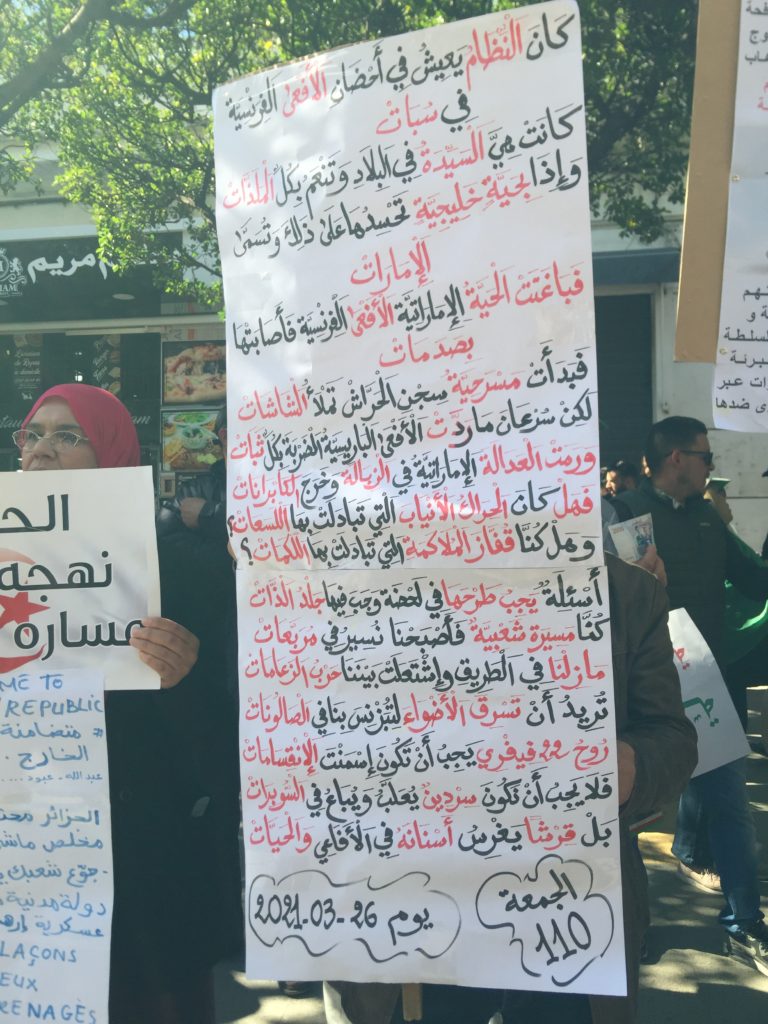 كَانَ النِّظَامُ يَعِيشُ فِي أَحْضَانِ الأَفْعَى الْفِرَنْسِيَّة
فِي سُبَاتْ
كَانَتْ هِيَ السَّيِّدَةُ فِي البِلَادِ وَتَنْعَمُ بِكُلِّ الْمَلَذَّاتْ
وَإِذَا بِحَيَّةٍ خَلِيجِيَّةٍ تَحْسِدُهَا عَلَى ذَلِكَ وَتُسَمَّى
الإِمَارَاتْ
فَبَاغَتَتْ الْحَيَّةُ الإِمَارَاتِيَّةُ الأَفْعَى الْفَرَنْسِيَّةَ فَأَصَابَتْهَا
بِصَدَمَاتْ
فَبَدَأَتْ مَسْرَحِيَّةُ سِجْنِ الْحَرَّاشْ تَمْلَأُ الشَّاشَاتْ
لَكِنْ سُرْعَانَ مَا رَدَّتْ الأَفْعَى الْبَارِيسِيَّةُ الضَّرْبَةَ بِكُلِّ ثَبَاتْ
وَرَمَتْ الْعَدَالَةَ الإِمَارَاتِيَّةَ فِي الزِّبَالَةِ وَخَرَجَ الكَابْرَانَاتْ
فَهَلْ كَانَ الْحِرَاكُ الأَنْيَابَ الَّتِي تَبَادَلَتْ بِهَا اللَّسَعَاتْ؟
وَهَلْ كُنَّا قُفَّازَ الْمُلَاكَمَةِ الَّتِي تَبَادَلَتْ بِهَا اللَّكَمَاتْ؟
أَسْئِلَةٌ يَجِبُ طَرْحُهَا فِي لَحْظَةٍ وَجَبَ فِيهَا جَلْدُ الذَّاتْ
كُنَّا مَسِيرَةً شَعْبِيَّةً فَأَصْبَحْنَا نَسِيرُ فِي مُرَبَّعَاتْ
مَازِلْنَا فِي الطَّرِيقِ وَاشْتَعَلَتْ بَيْنَنَا حَرْبُ الزَّعَامَاتْ
تُرِيدُ أَنْ تَسْرِقَ الأَضْوَاءَ لِتُبَزْنِسَ بِنَا فِي الصَّالُونَاتْ
رُوحُ 22 فِيفْرِي يَجِبُ أَنْ تَكُونَ إِسْمَنْتَ الإِنْقِسَامَاتْ
فَلَا يَجِبُ أَنْ تَكُونَ سَرْدِينْ يُعَلَّبُ وَيُبَاعُ فِي السُّوبِرَاتْ
بَلْ قِرْشًا يَغْرِسُ أَسْنَانَهُ فِي الأَفَاعِي وَالْحَيَّاتْ
الجمعة
110
يوم 26-03-2021
نهجه
مساره
ME TO
REPUBLIC
# متضامنة
الخارج
عبدالله - عبود ....
الجزائر
مخلص
جوّع شعبك
دولة مدنية
عسكرية
LAÇONS
EUX
RENAGÈS
مريم